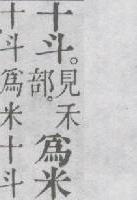 十斗。見禾部。爲米
十斗爲米十斗